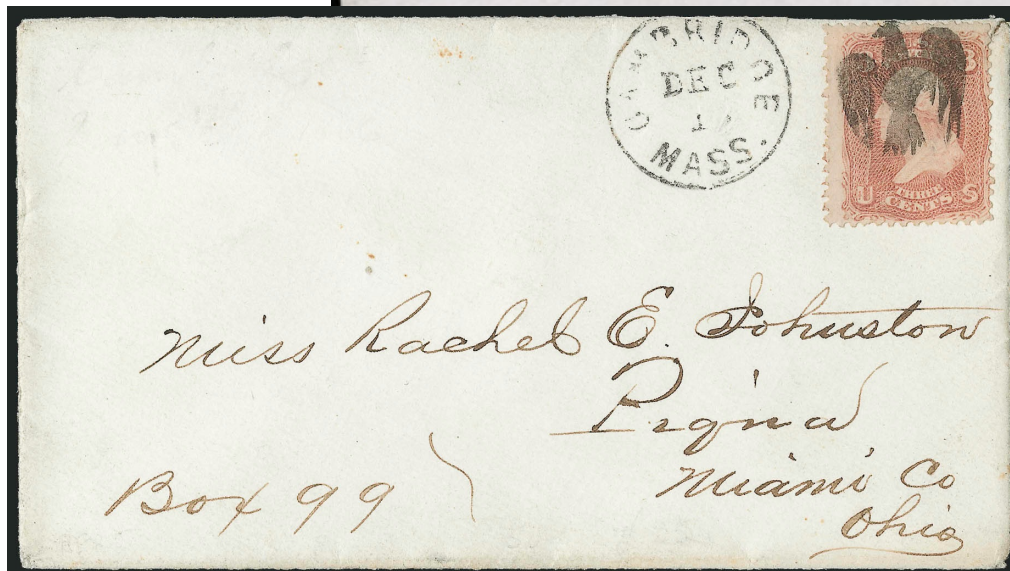 CAMBRIDGE
DEC
MASS.
3
THREE
U CENTS S
Miss Rachel E. Johnston
Piqua
Miami Co
Ohio
Box 99